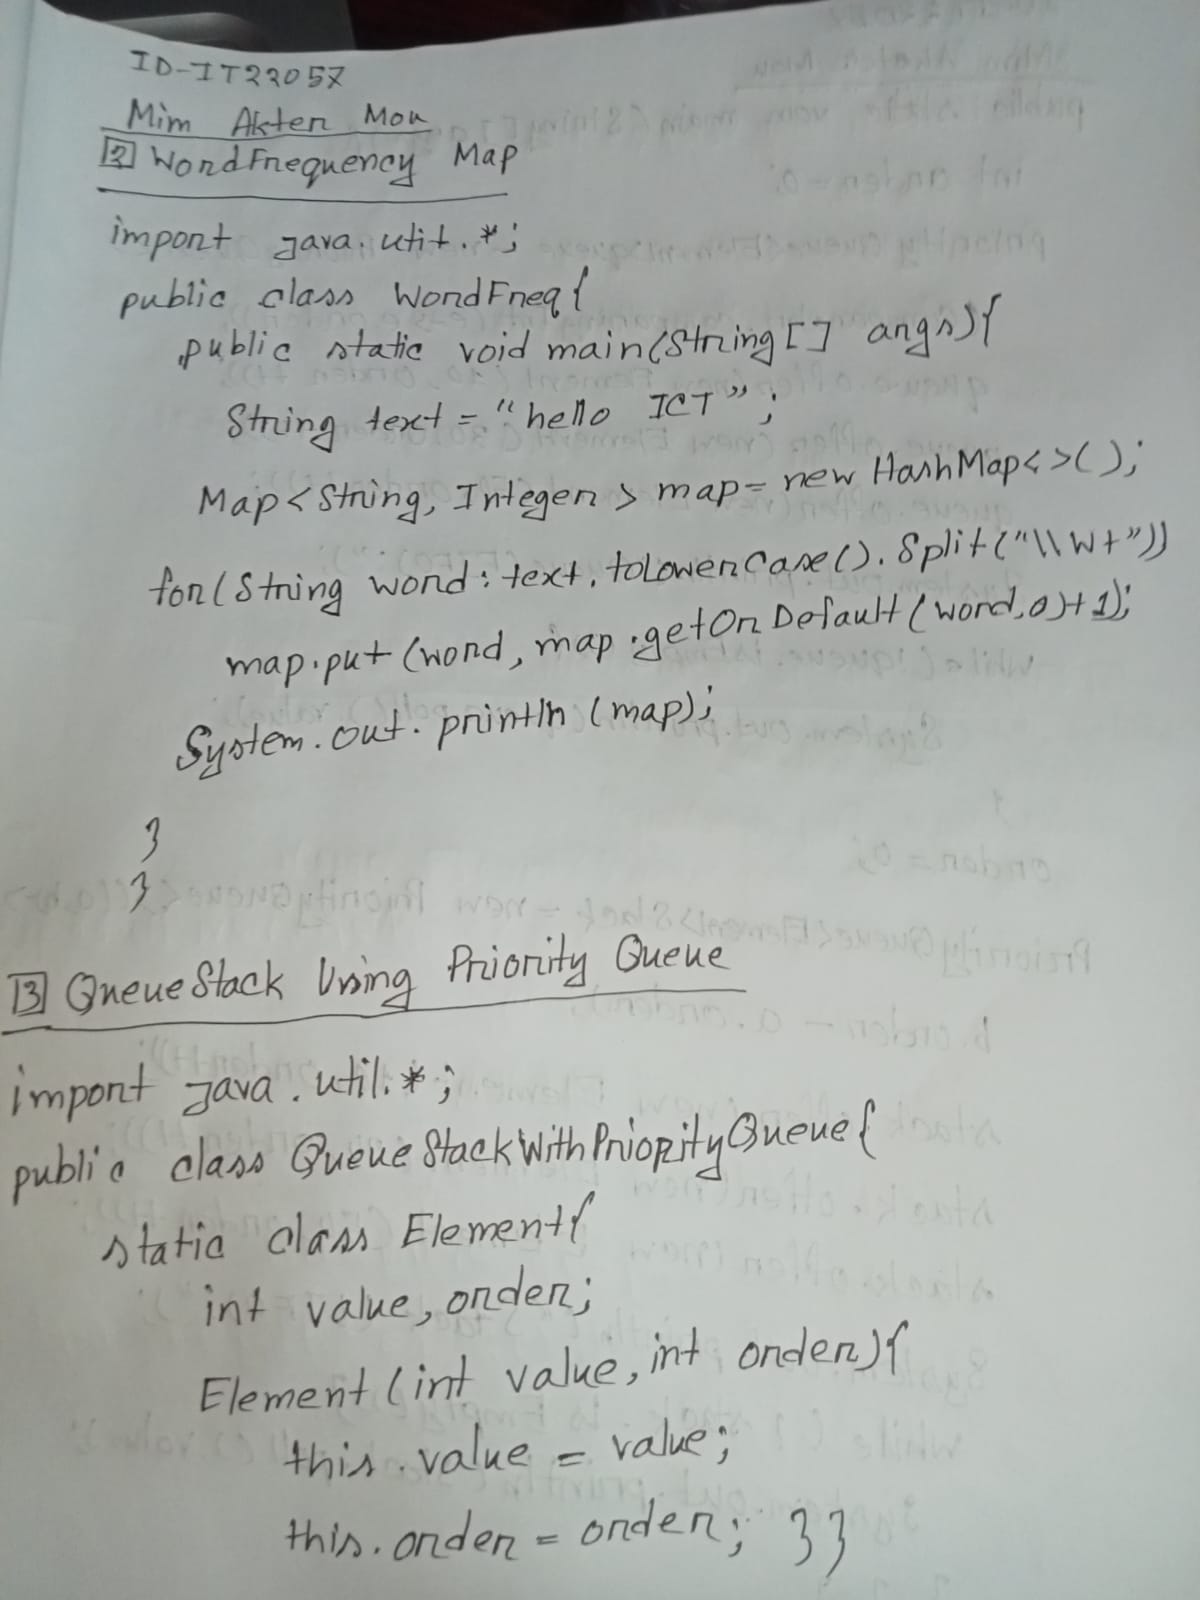 ID-IT22057
Mim Akter Mou
2 WordFrequency Map
import java.util.*;
public class WordFreq{
public static void main(String[] args){
String text = "hello ICT";
Map<String, Integer> map = new HashMap<>();
for(String word: text.toLowerCase().Split("\\W+"))
map.put(word, map.getOrDefault(word,0)+1);
System.out.println(map);
}
}
3 QueueStack Using Priority Queue
import java.util.*;
public class QueueStackWithPriorityQueue{
static class Element{
int value, order;
Element(int value, int order){
this.value = value;
this.order = order; }}